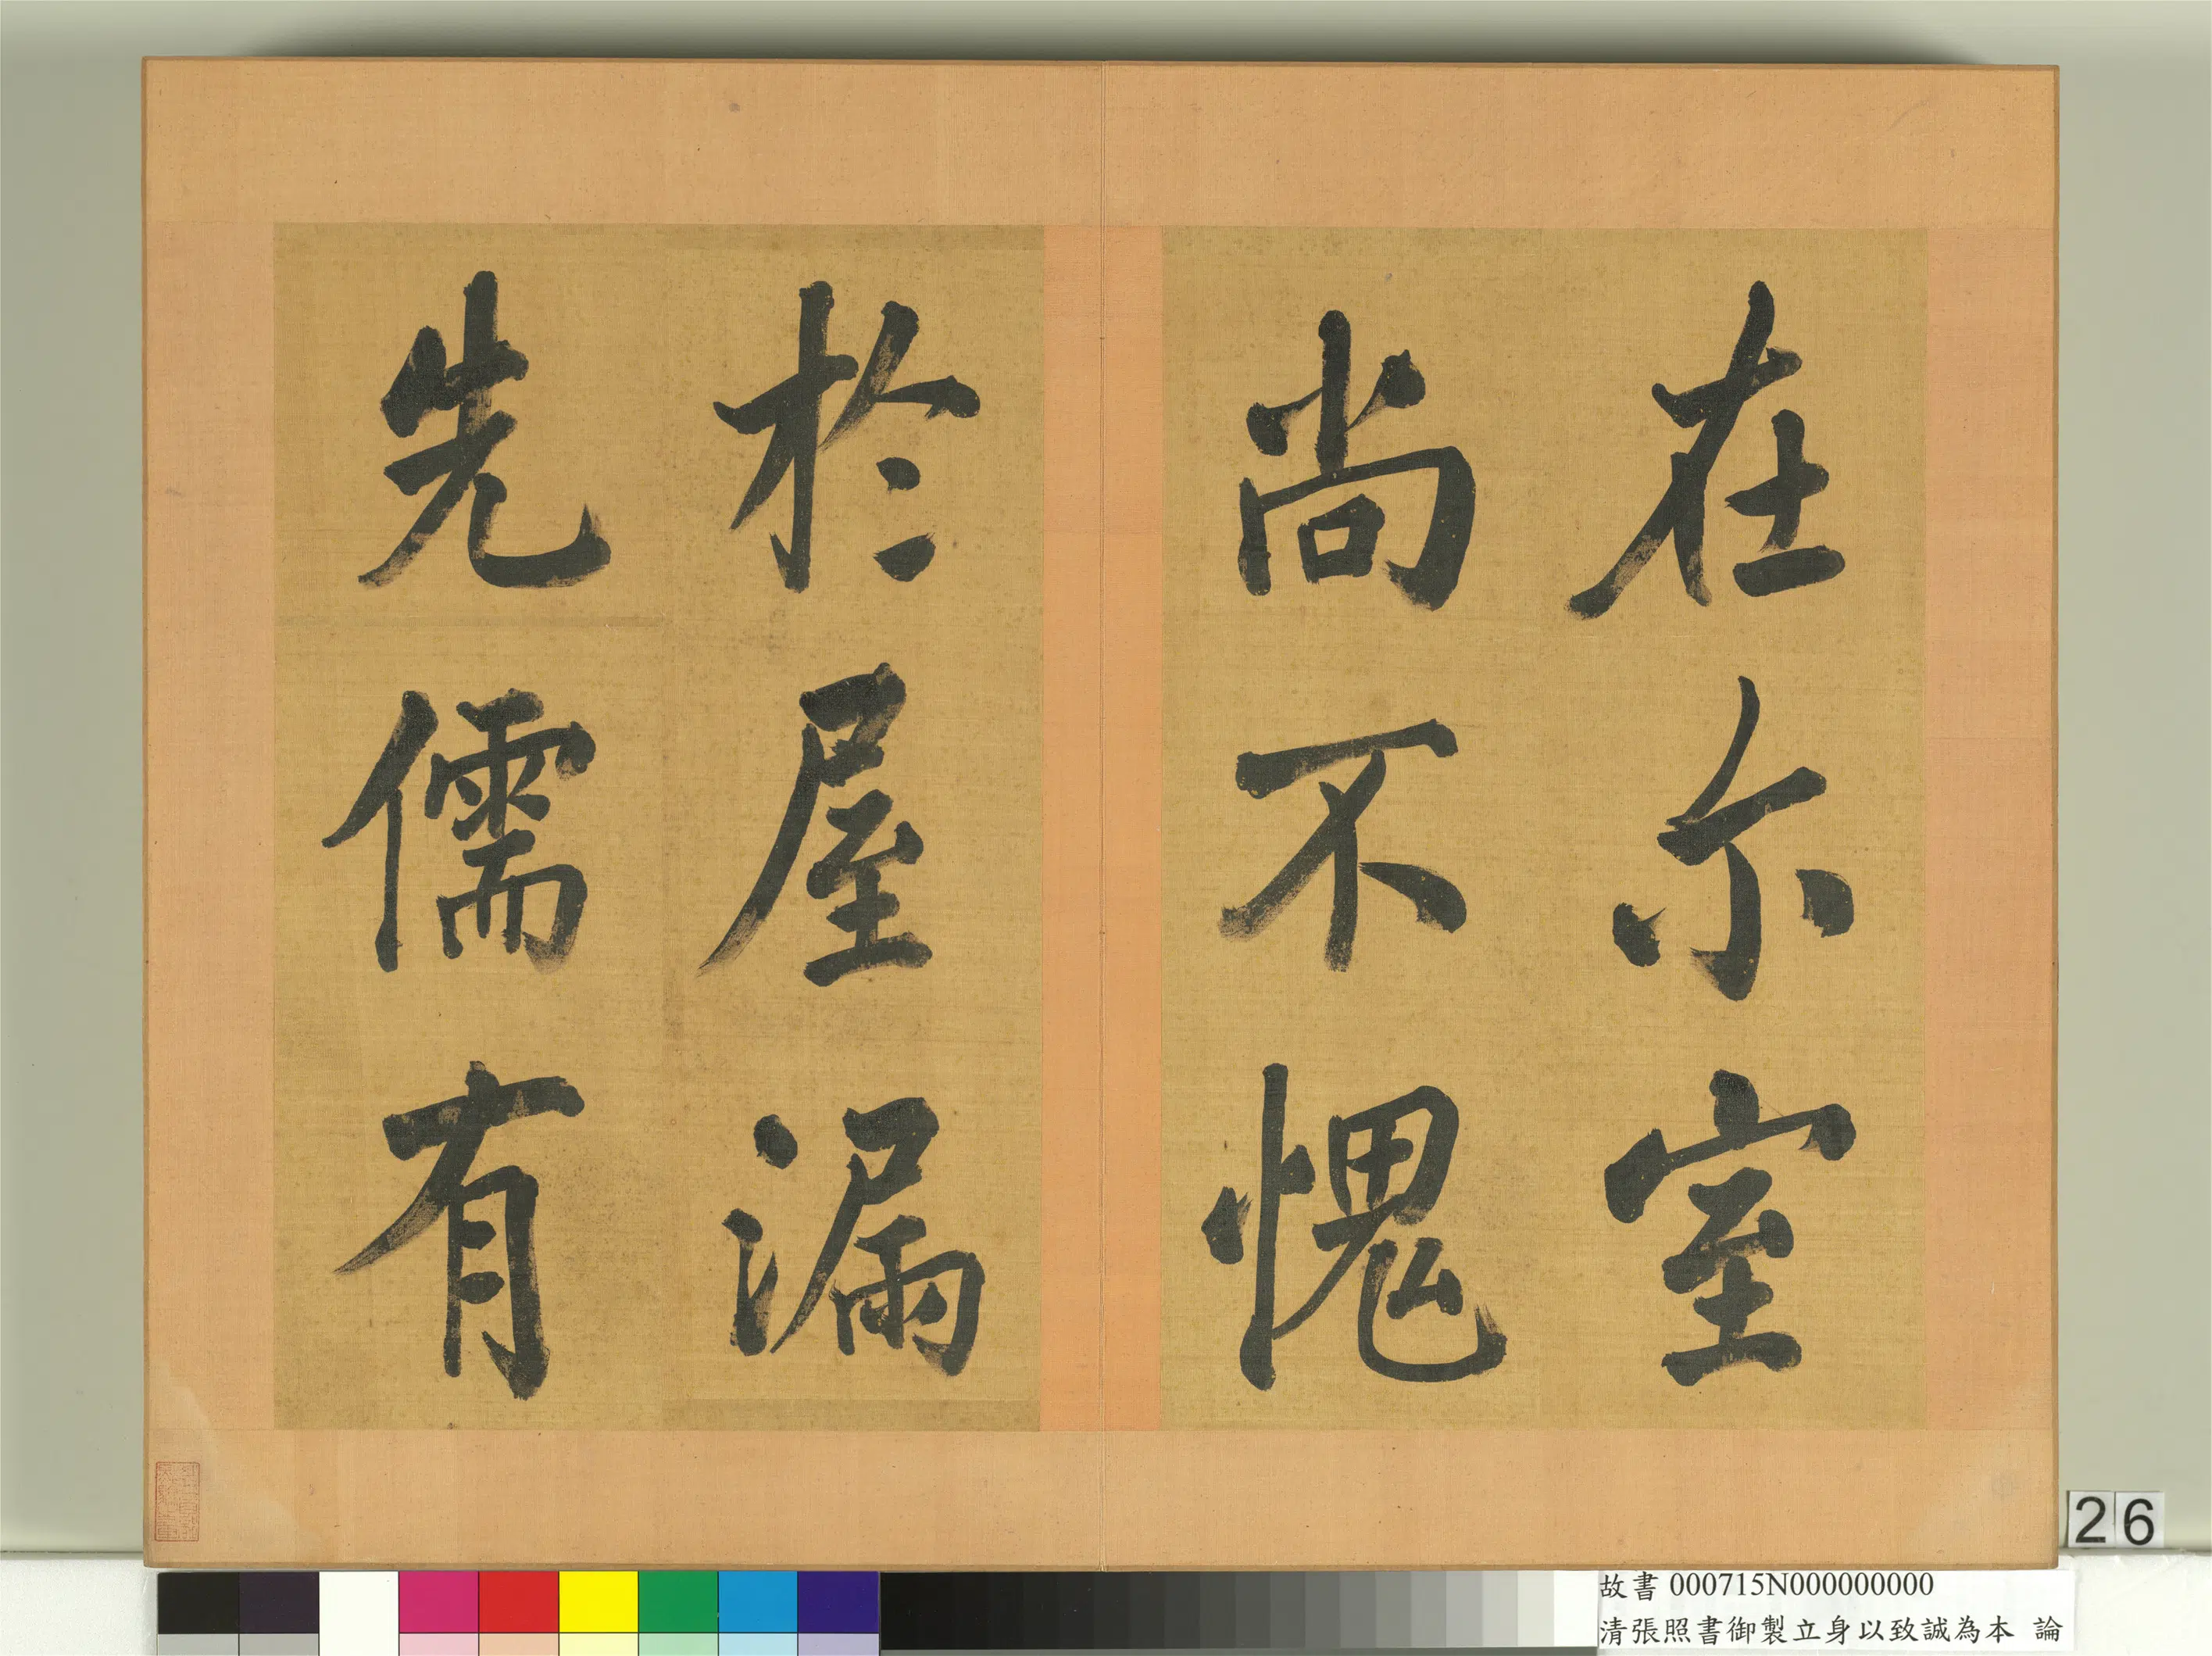 在尓室
尚不愧
於屋漏
先儒有
26
故書 000715N000000000
清張照書御製立身以致誠為本 論